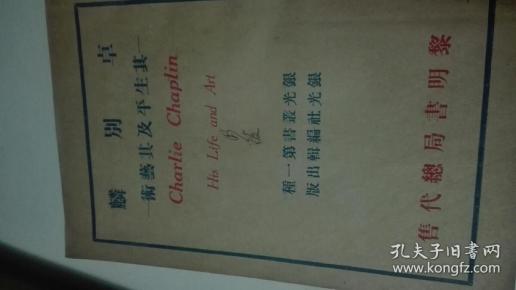 卓別麟
—其生平及其藝術—
Charlie Chaplin
His Life and Art
銀光叢書第一種
銀光社編輯出版
黎明書局總代售
孔夫子旧书网